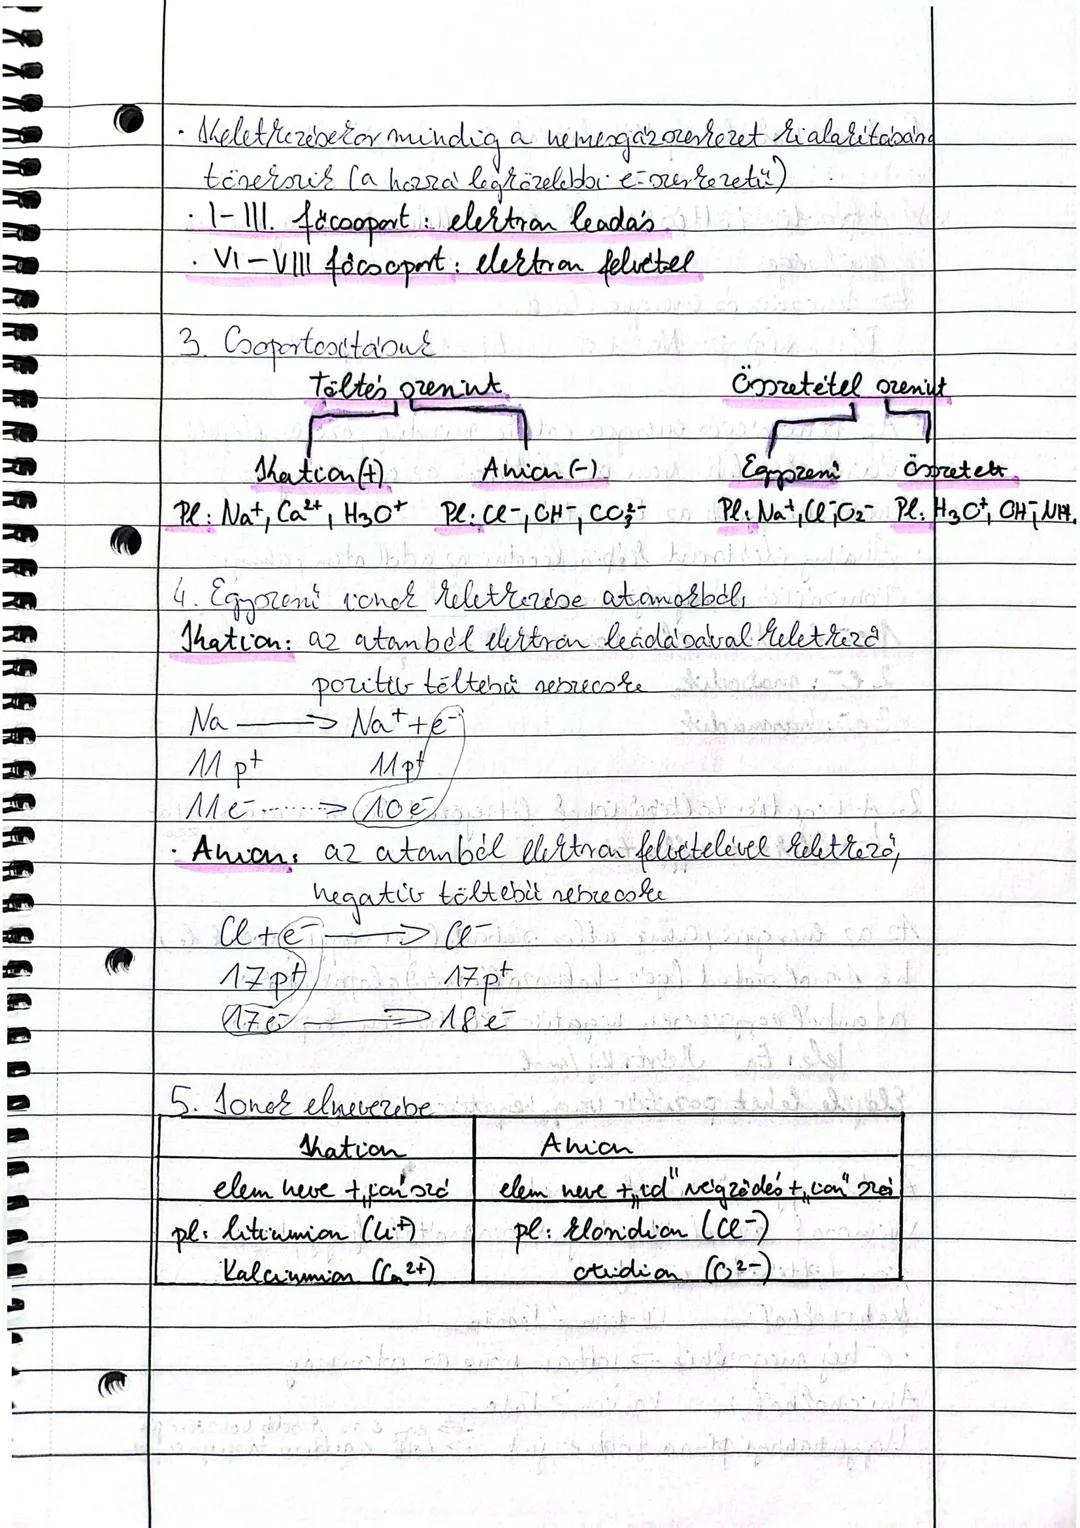 · Keletkezésekor mindig a nemesgázszerkezet kialakítására
törekszik (a hozzá legközelebbi e⁻szerkezetű)
· I-III. főcsoport : elektron leadás
· VI-VIII főcsoport : elektron felvétel
3. Csoportosításuk
Töltés szerint Összetétel szerint
Kation (+) Anion (-) Egyszerű Összetett
Pl: Na⁺, Ca²⁺, H₃O⁺ Pl: Cl⁻, OH⁻, CO₃²⁻ Pl: Na⁺, Cl⁻, O²⁻ Pl: H₃O⁺, OH⁻, NH₄
4. Egyszerű ionok keletkezése atomokból
Kation: az atomból elektron leadásával keletkező
pozitív töltésű részecske
Na → Na⁺ + e⁻
11 p⁺ 11 p⁺
11 e⁻ ........> 10 e⁻
· Anion: az atomból elektron felvételével keletkező,
negatív töltésű részecske
Cl + e⁻ → Cl⁻
17 p⁺ 17 p⁺
17 e⁻ → 18 e⁻
5. Ionok elnevezése
Kation Anion
elem neve + „ion" szó elem neve + „id" végződés + „ion" szó
pl: lítiumion (Li⁺) pl: kloridion (Cl⁻)
Kalciumion (Ca²⁺) oxidion (O²⁻)